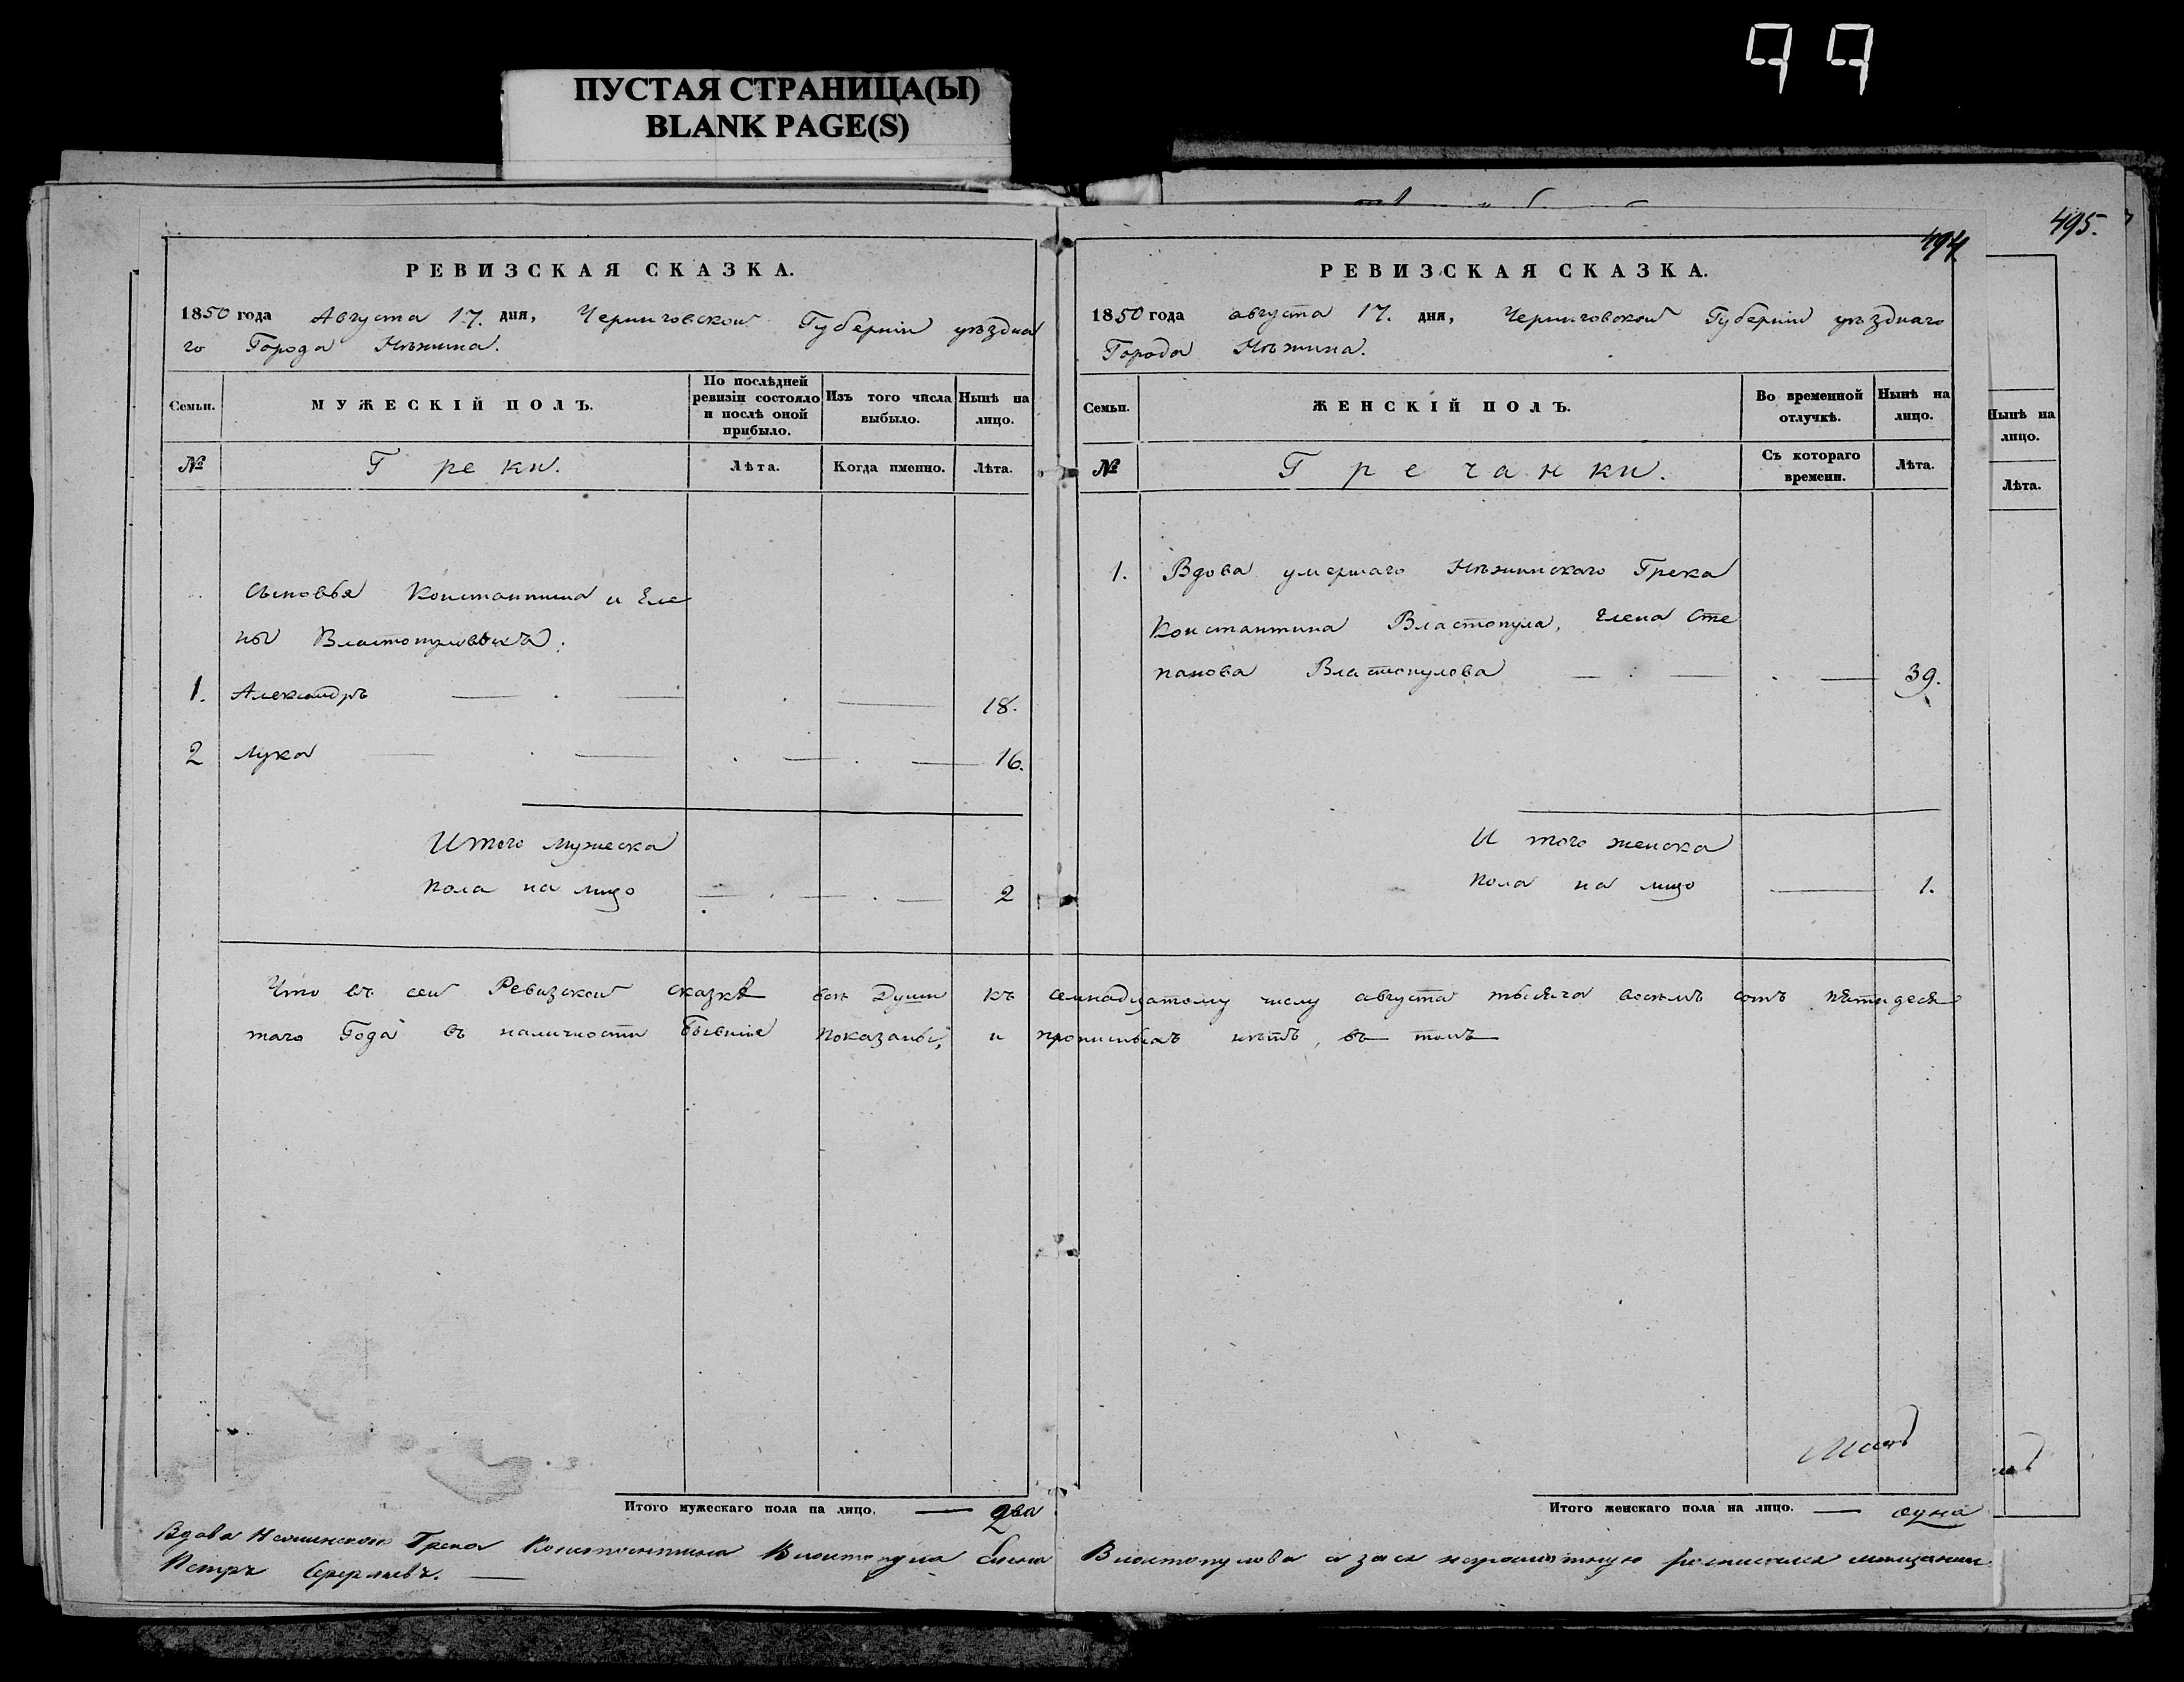 99
ПУСТАЯ СТРАНИЦА(Ы)
BLANK PAGE(S)
495.
494
РЕВИЗСКАЯ СКАЗКА.
1850 года Августа 17. дня, Черниговской Губерніи уѣздна
го Города Нѣжина.
Семьи.
МУЖЕСКІЙ ПОЛЪ.
По послѣдней ревизіи состояло и послѣ оной прибыло.
Изъ того числа выбыло.
Нынѣ на лицо.
№
Греки.
Лѣта.
Когда именно.
Лѣта.
Сыновья Константина и Еле
ны Властопуловыхъ.
1. Александръ 18.
2 Лука 16.
Итого мужеска
пола на лицо 2
РЕВИЗСКАЯ СКАЗКА.
1850 года августа 17. дня, Черниговской Губерніи уѣзднаго
Города Нѣжина.
Семьи.
ЖЕНСКІЙ ПОЛЪ.
Во временной отлучкѣ.
Нынѣ на лицо.
№
Гречанки.
Съ котораго времени.
Лѣта.
1. Вдова умершаго Нѣжинскаго Грека
Константина Властопула, Елена Сте
панова Властопулова 39.
И того женска
пола на лицо 1.
Что въ сей Ревизской сказкѣ всѣ Души къ семнадцатому числу августа тысяча восемь сотъ пятидеся
таго Года въ наличности бывшіе показаны, и прописныхъ нѣтъ, въ томъ
Итого мужескаго пола на лицо. два
Итого женскаго пола на лицо. одна
Вдова Нежинского Грека Константина Властопула Елена Властопулова а за ея неграмотную росписался мещанин
Петръ
Нынѣ на лицо.
Лѣта.